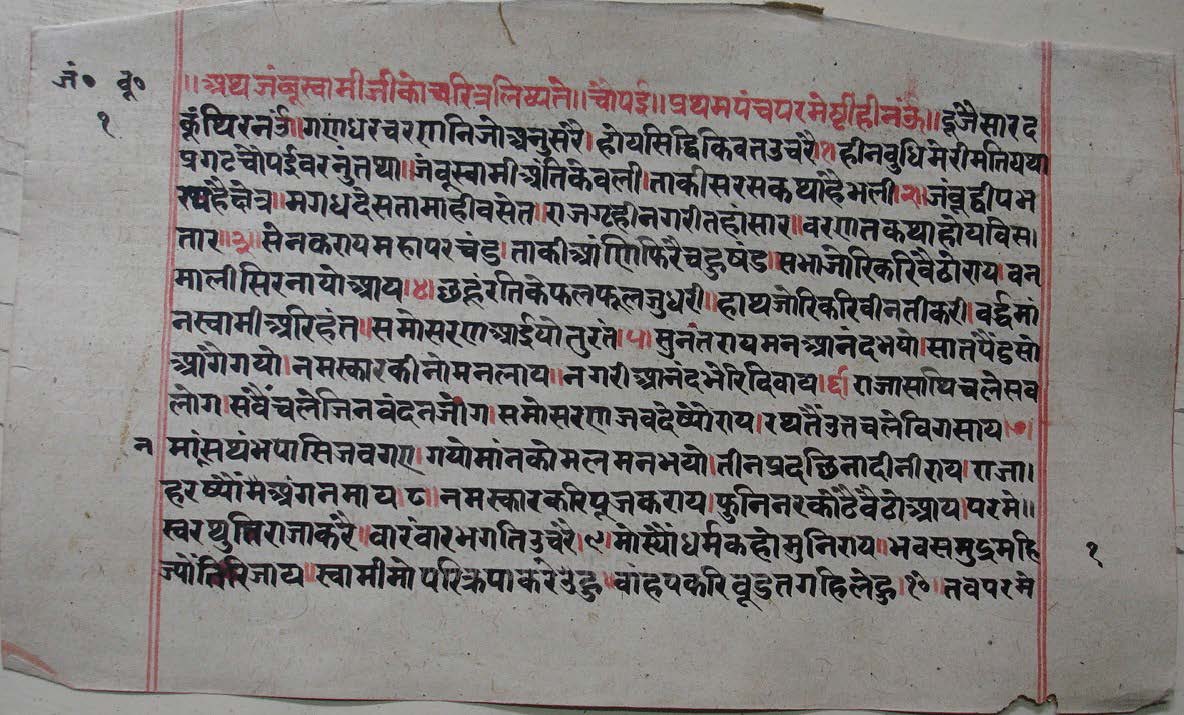 जं० बू०
१
॥अथ जंबूस्वामीजीकोचरित्रलिष्यते॥चौपई॥प्रथमपंचपरमेष्टीहीनंऊ॥दूजैसारद
कूंथिरनंऊं।गणधरचरणनिजोअनुसरै।होयसिद्धिकवितउचरै।१हीनबुधिमेरीमतियथा
प्रगटचौपईवरनुंतथा॥जंबूस्वामीअंतिकेवली।ताकीसरसकथाहैभली।२।जंबूद्वीपभ
रथहैक्षेत्र॥मगधदेसतामाहीवसेत॥राजगृहीनगरीतहांसार॥वरणतकथाहोयविस।
तार॥३॥सेनकरायमहापरचंड।ताकीआंणिफिरैचहुषंड।सभाजोरिकरिवैठोराय।वन
मालीसिरनायोआय।४।छहूंरतिकेफलफूलजुधरी॥हाथजोरिकरिवीनतीकरी।वर्द्धमां
नस्वामीअरिहंत॥समोसरणआईयोतुरंत।५।सुनंतरायमनआनंदभयो।सातपैंडसो
आंगेगयो।नमस्कारकीनोमनलाय॥नगरीआनंदभेरिदिवाय।६।राजासाथिचलेसव
लोग।सवैंचलेजिनवंदनजोग।समोसरणजवदेष्योराय।रथतैंउतचलेविगसाय।७।
न मांसथंभपासिजवगए।गयोमांनकोमलमनभयो।तीनप्रदछिनादीनीराय।राजा।
हरष्यौंमैअंगनमाय।८।नमस्कारकरिपूजकराय।फुनिनरकोठैवैठोआय।परमे॥
स्वरथुतिराजाकरै॥वारंवारभगतिउचरै।९।मोस्यौंधर्मकहोमुनिराय॥भवसमुद्रमहि
ज्योंतिरिजाय॥स्वामीमोपरिक्रपाकरेउहु॥वांहपकरिवूडतगहिलेहु।१०॥तवपरमे
१